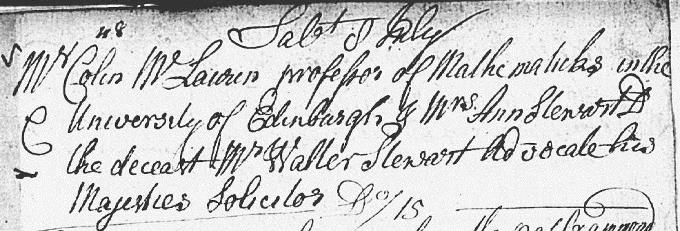 48 Sabt 8 July
Mr Colin McLaurin professor of Mathematicks in the
University of Edinburgh & Mrs. Ann Stewart D
the deceast Mr Walter Stewart Advocate his
Majesties Solicitor /15